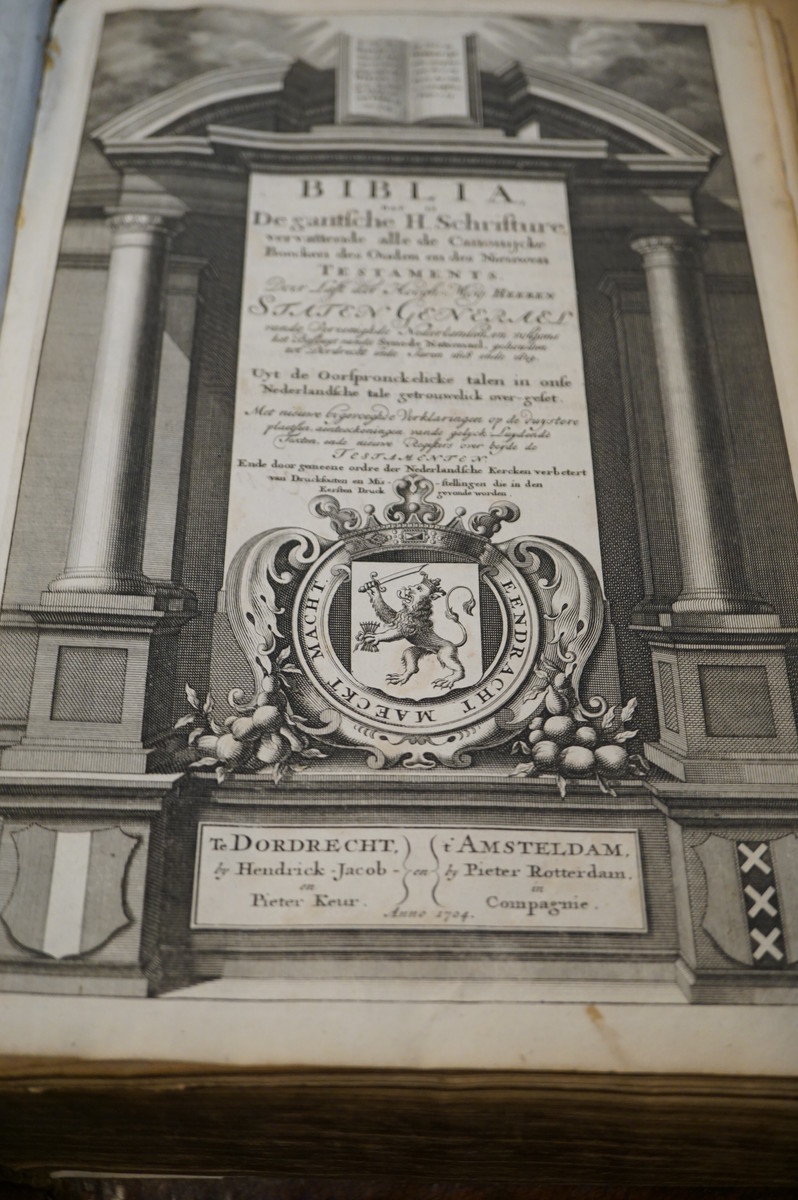 BIBLIA,
dat is
De gantsche H. Schrifture,
vervattende alle de Canonijcke
Boecken des Ouden en des Nieuwen
TESTAMENTS
Door Last der Hoogh-Mog: HEEREN
STATEN GENERAEL
vande Vereenighde Nederlanden, en volgens
het Besluyt vande Synode Nationael, gehouden
tot Dordrecht inde Jaren 1618 ende 1619.
Uyt de Oorspronckelicke talen in onse
Nederlandsche tale getrouwelick over-geset.
Met nieuwe bygevoeghde Verklaringen op de duystere
plaetsen, aenteeckeningen vande gelyck-Luydende
Texten, ende nieuwe Registers over beyde de
TESTAMENTEN.
Ende door gemeene ordre der Nederlandsche Kercken verbetert
van Druckfouten en Mis-stellingen die in den
Eersten Druck gevonde worden.
EENDRACHT MAECKT MACHT.
Te DORDRECHT, en t'AMSTELDAM,
by Hendrick-Jacob- by Pieter Rotterdam,
en in
Pieter Keur. Compagnie.
Anno 1704.